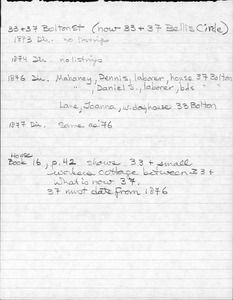 33 + 37 Bolton St (now 33 + 37 Bellis Circle)
1873 Dir. no listings
1874 Dir. no listings
1876 Dir. Mahaney, Dennis, laborer, house 37 Bolton
" Daniel J., laborer, bds "
Lane, Joanna, widow, house 33 Bolton
1877 Dir. Same as '76
House
Book 16, p. 42 shows 33 + small
workers cottage between 33 +
what is now 37.
37 must date from 1876